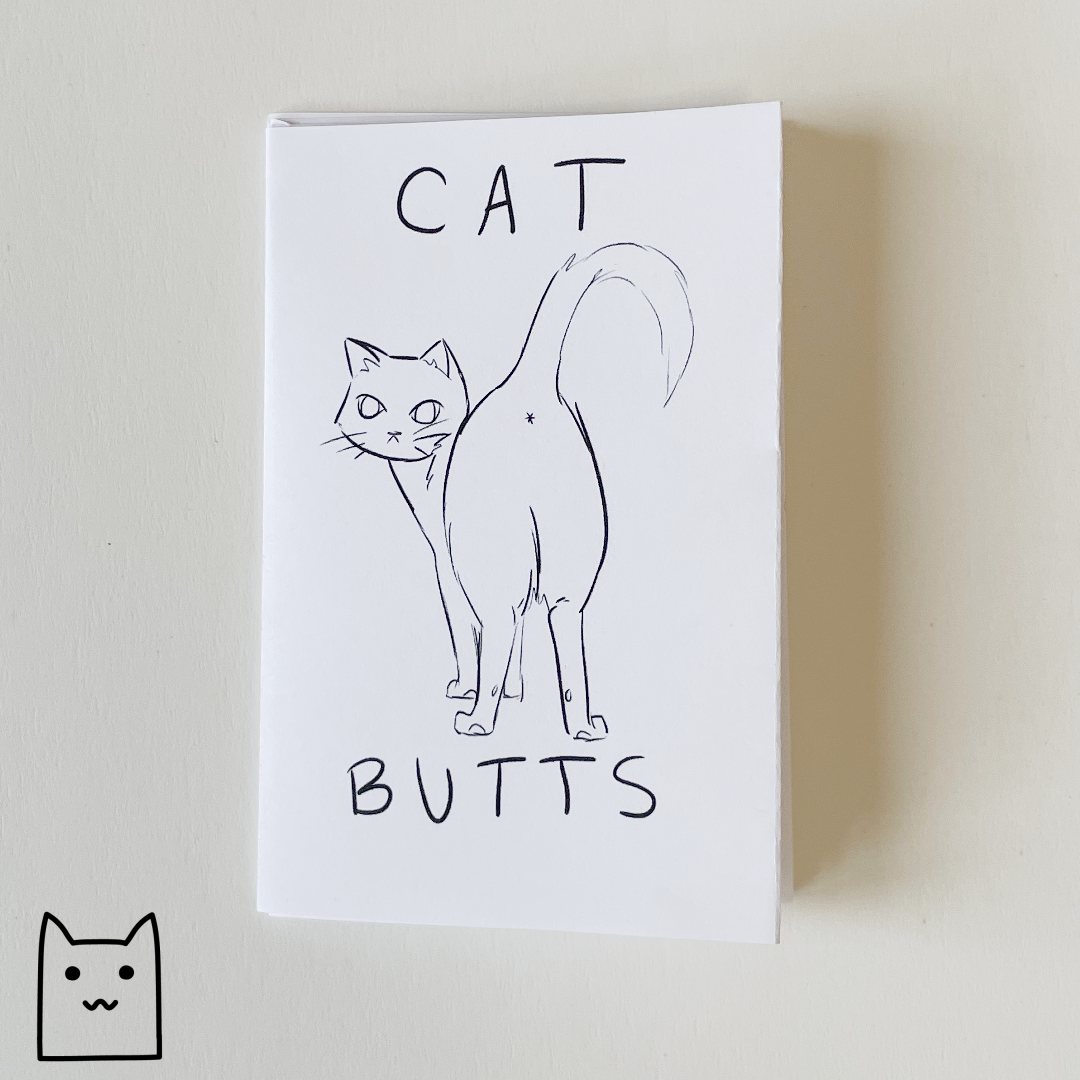 CAT
BUTTS